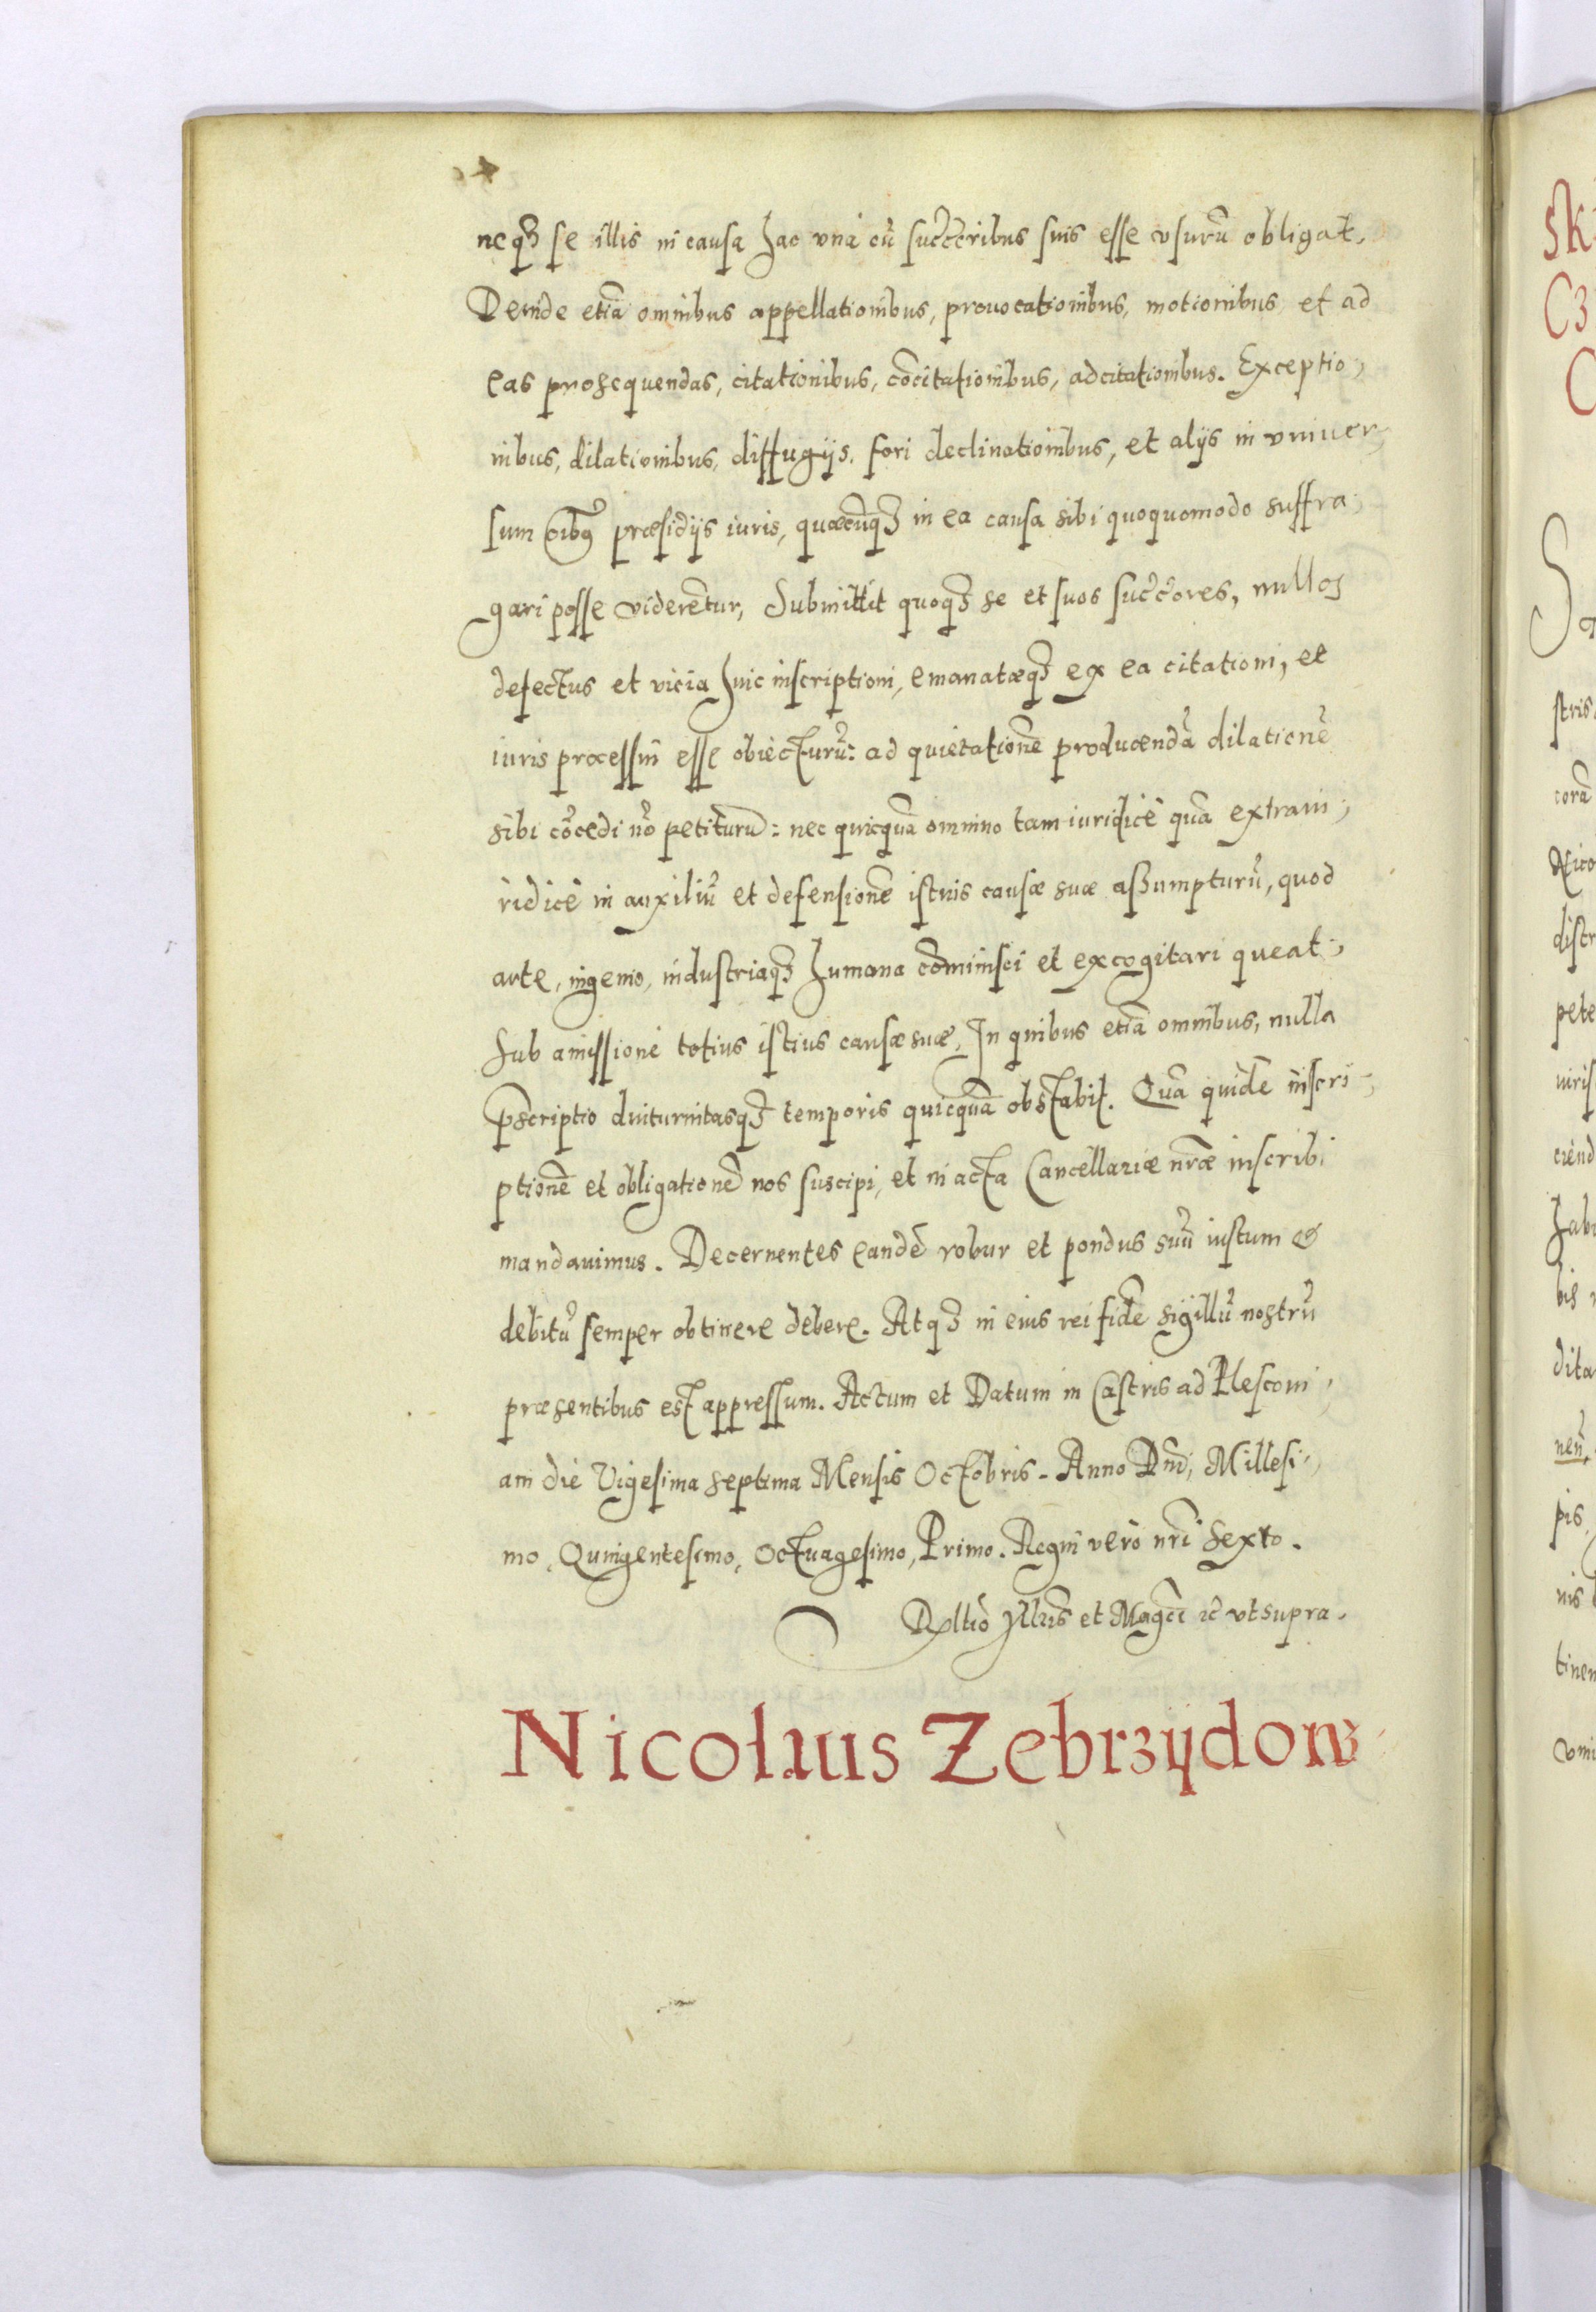 neqꝫ se illis in causa hac vna cũ succ̃cribus suis esse vsurũ obligat.
Deinde etiã omnibus appellationibus, prouocationibus, motionibus et ad
eas prosequendas, citationibus, cõcitationibus, adcitationibus. Exceptio,
nibus, dilationibus, diffugijs, fori declinationibus, et alijs in vniuer,
sum oĩbꝰ præsidijs iuris, quæcũqꝫ in ea causa sibi quoquomodo suffra,
gari posse viderẽtur, Submittit quoqꝫ se et suos succ̃ores, nullos
defectus et vicia huic inscriptioni, emanatæqꝫ ex ea citationi, et
iuris processui esse obiecturũ: ad quietationẽ producendã dilationẽ
sibi cõcedi nõ petiturũ: nec quicquã omnino tam iuridicè quã extraiu,
ridicè in auxiliũ et defensionẽ istius causæ suæ assumpturũ, quod
arte, ingenio, industriaqꝫ humana cõminisci et excogitari queat,
Sub amissione totius istius causæ suæ, In quibus etiã omnibus, nulla
p̃scriptio diuturnitasqꝫ temporis quicquã obstabit. Quã quidẽ inscri,
ptionẽ et obligationẽ nos suscipi, et in acta Cancellariæ nr̃æ inscribi
mandauimus. Decernentes eandẽ robur et pondus suũ iustum et
debitũ semper obtinere debere. Atqꝫ in eius rei fidẽ sigillũ nostrũ
præsentibus est appressum. Actum et Datum in Castris ad Plescoui,
am die Vigesima septima Mensis Octobris. Anno Dñi, Millesi,
mo, Quingentesimo, Octuagesimo, Primo. Regni verò nr̃i sexto.
Rltiõ Yllris et Magci ꝛc vt supra.
Nicolaus Zebrzydow